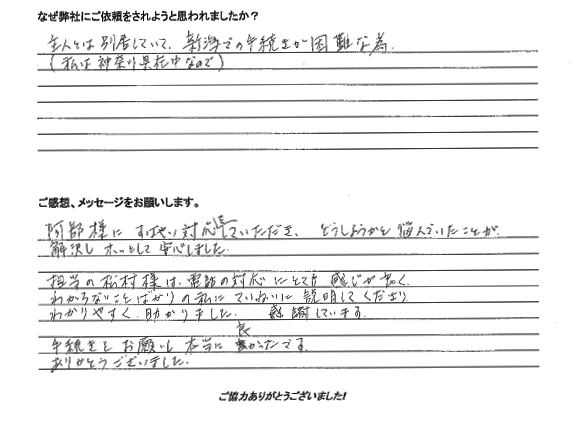 なぜ弊社にご依頼をされようと思われましたか?
主人とは別居していて、新潟での手続きが困難な為、
(私は神奈川県在中なので)
ご感想、メッセージをお願いします。
阿部様にすばやい対応をしていただき、どうしようかと悩んでいたことが、
解決しホッとして安心しました。
担当の松村様は、電話の対応にとても感じが良く、
わからないことばかりの私にていねいに説明してくださり
わかりやすく、助かりました。感謝しています。
手続きをお願いし本当に良かったです。
ありがとうございました。
ご協力ありがとうございました!